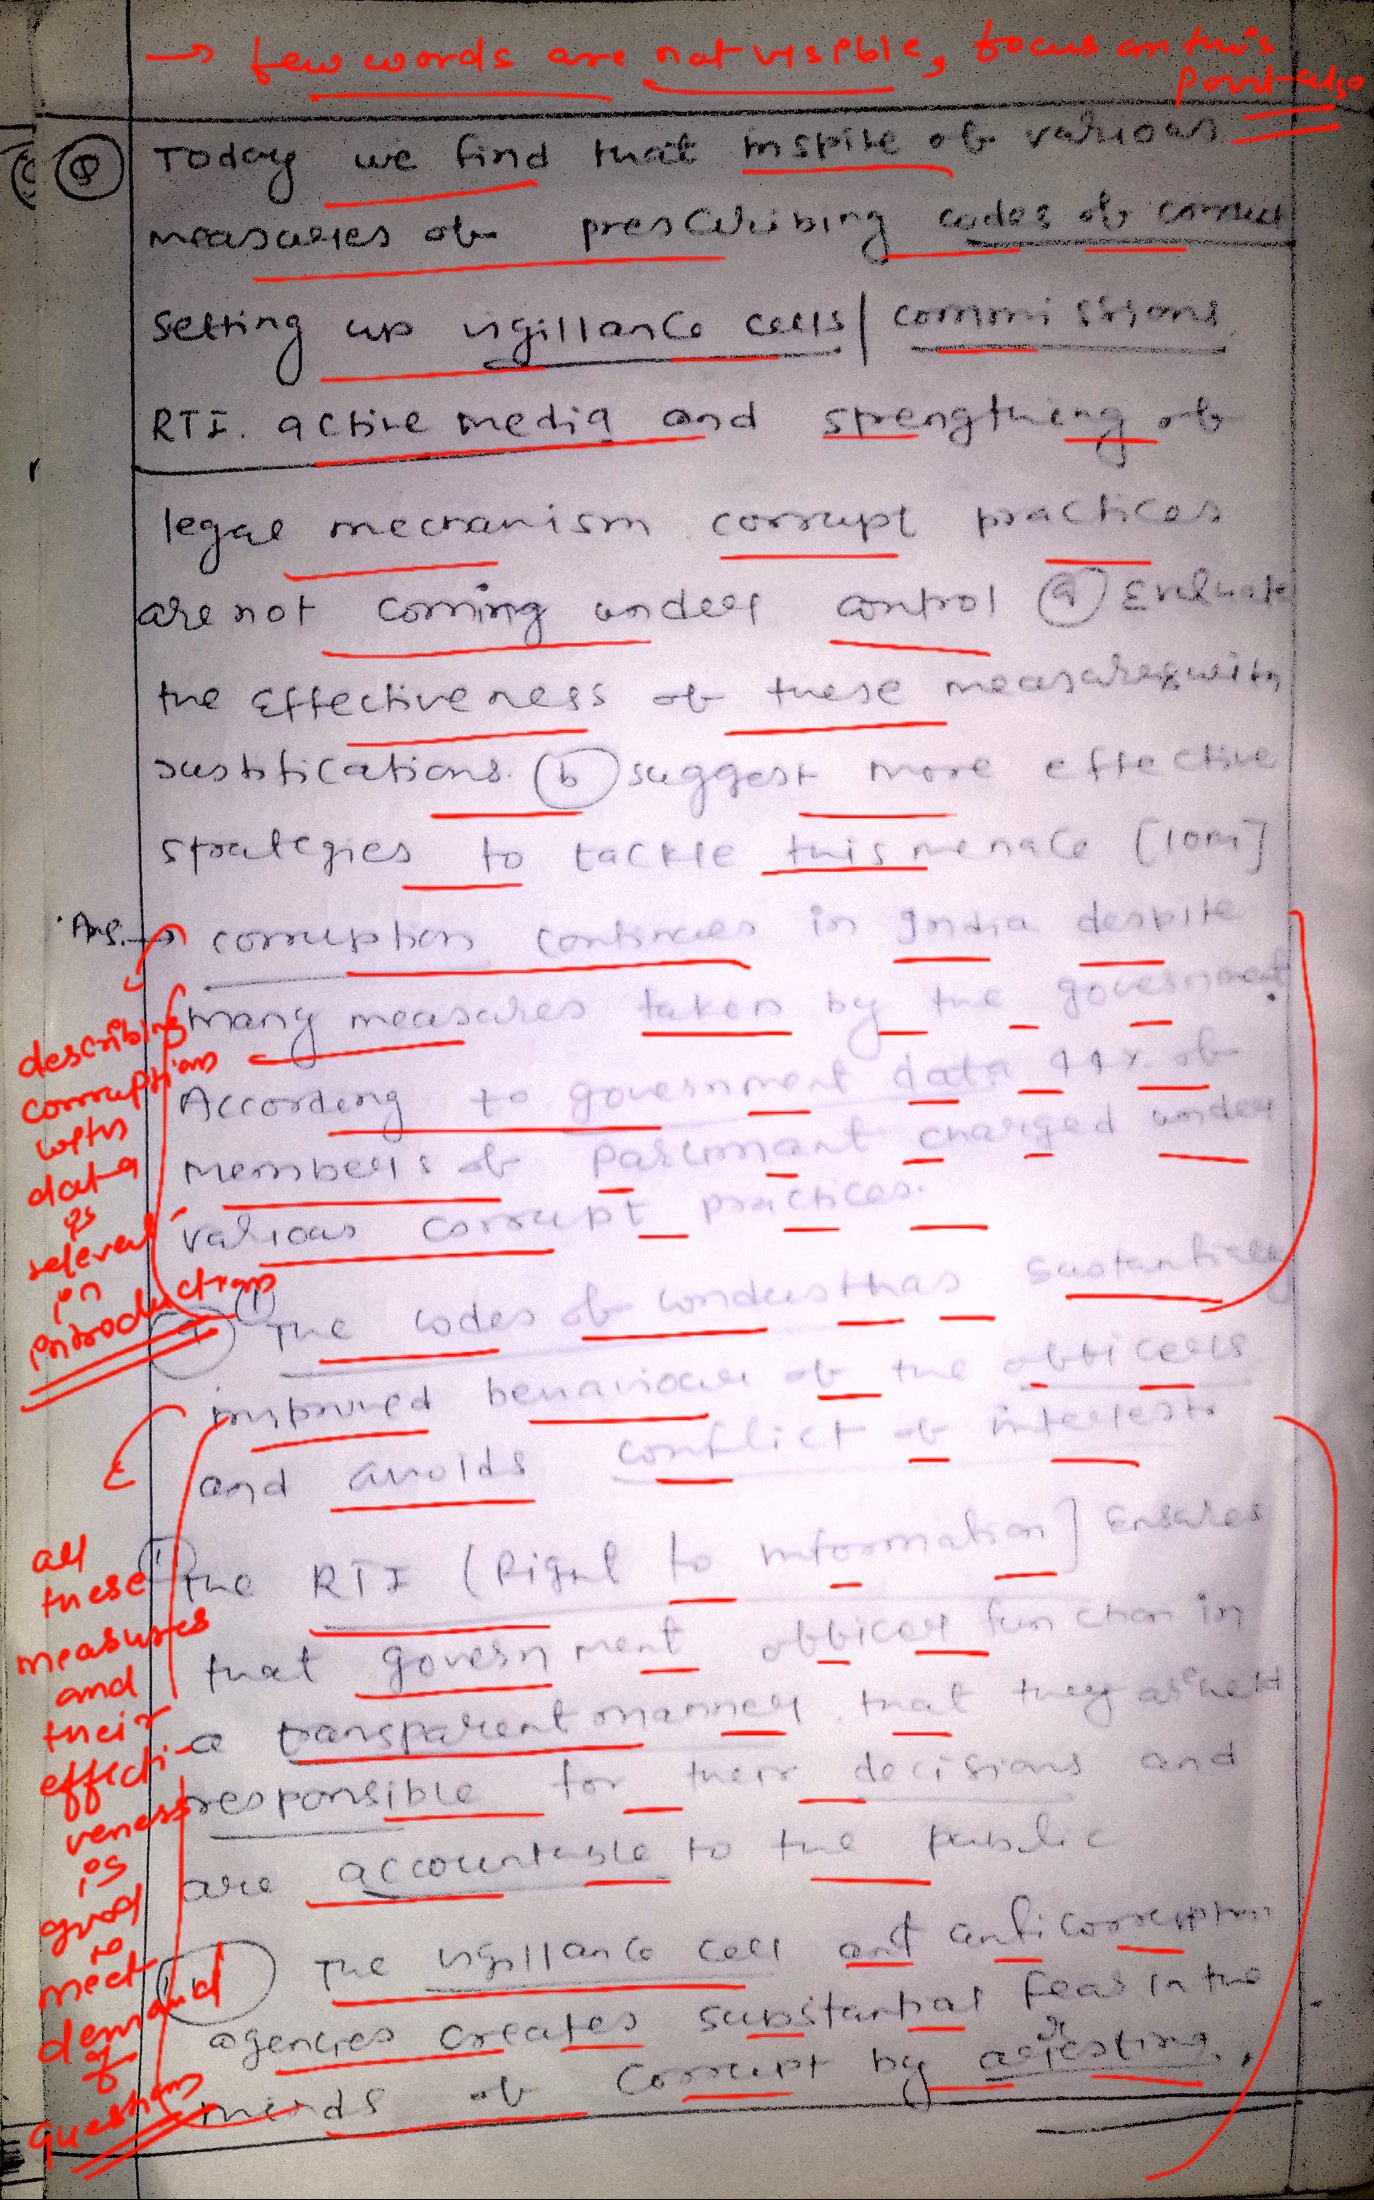 → few words are not visible, focus on this
point also
Q Today we find that inspite of various
measures of prescribing codes of conduct
setting up vigillance cells/commissions
RTI. active media and strengthing of
legal mechanism corrupt practices
are not coming under control (a) Evaluate
the Effectiveness of these measures with
justifications. (b) suggest more effective
strategies to tackle this menace [10M]
Ans. → corruption continues in India despite
many measures taken by the government
According to government data 44% of
members of Parlimant charged under
various corrupt practices.
describing
corruptions
with
data
is
relevant
in
introduction
① The codes of conduct has sustantially
improved behaviour of the officers
and avoids conflict of interests
the RTI (Right to Information] Ensures
that government officer function in
a transparent manner that they
responsible for their decisions and
are accountable to the public
The vigillance cell and anticorruption
agencies creates substantial fear in the
minds of corrupt by arresting.
all
these
measures
and
their
effecti-
veness
is
good
to
meet
demand
of
question